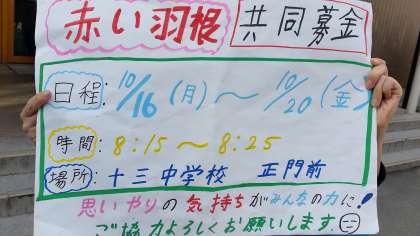 赤い羽根 共同募金
日程: 10/16 (月) ~ 10/20 (金)
時間: 8:15 ~ 8:25
場所: 十三中学校 正門前
思いやりの気持ちがみんなの力に!
ご協力よろしくお願いします。